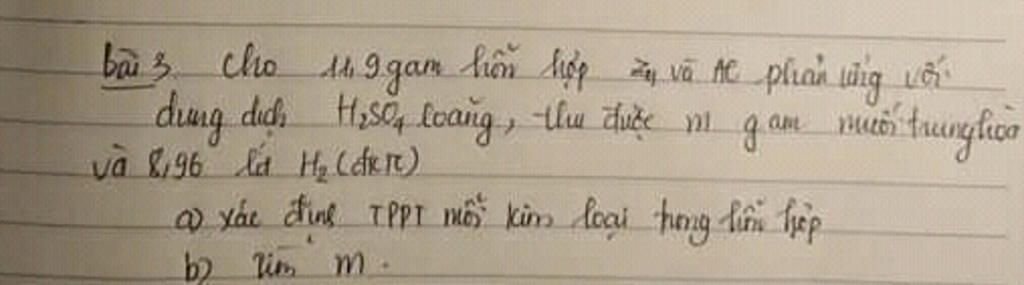 bài 3. Cho 11,9 gam hỗn hợp Zn và Al phản ứng với
dung dịch H₂SO₄ loãng, thu được m gam muối trung hòa
và 8,96 lít H₂ (đktc)
a) xác định TPPT mỗi kim loại trong hỗn hợp
b) Tìm m.